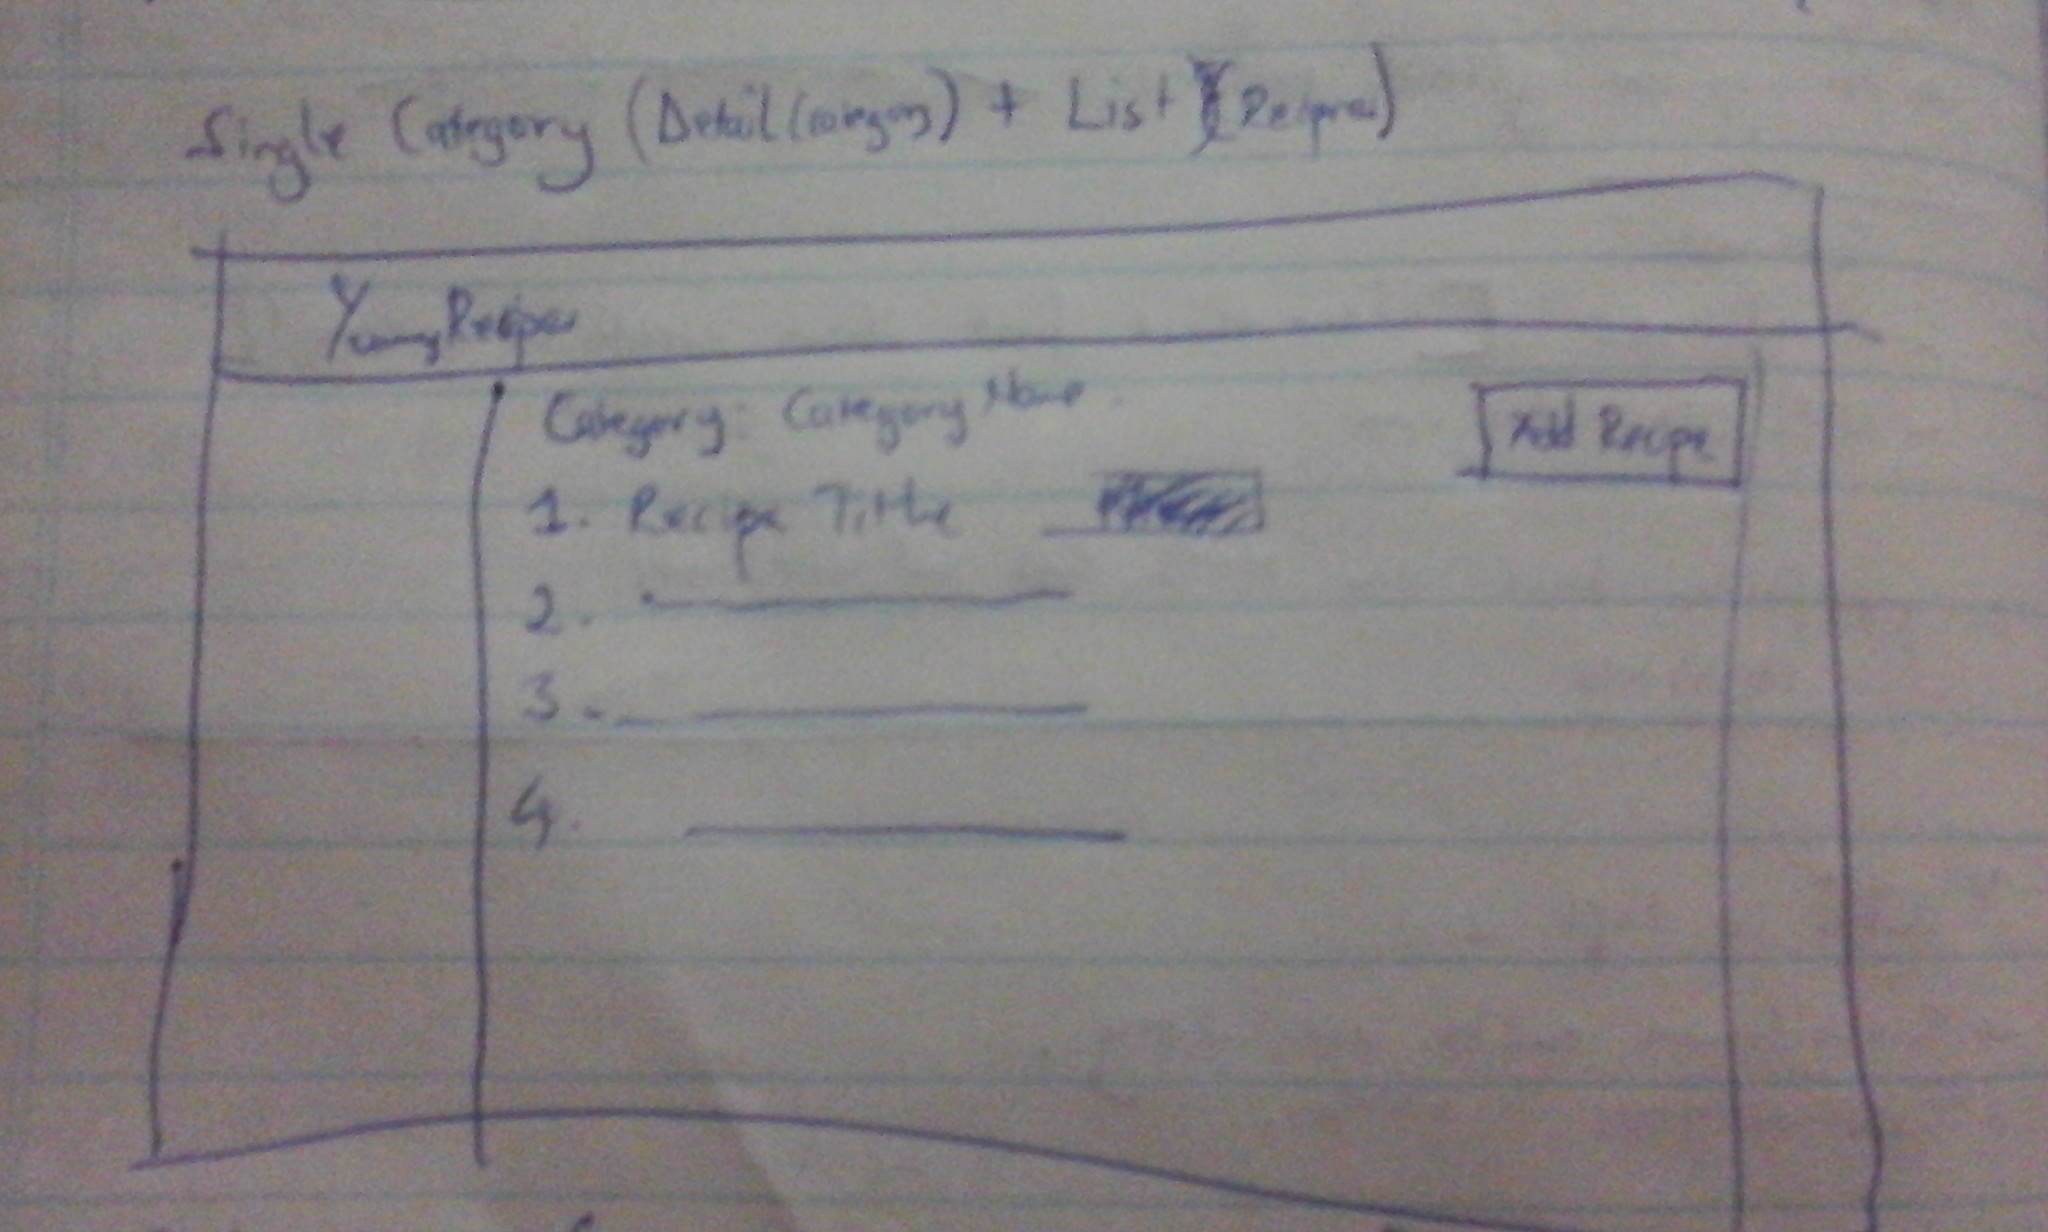 Single Category (Detail (category) + List (Recipes)
YummyRecipes
Category: Category Name
Add Recipe
1. Recipe Title
2.
3.
4.